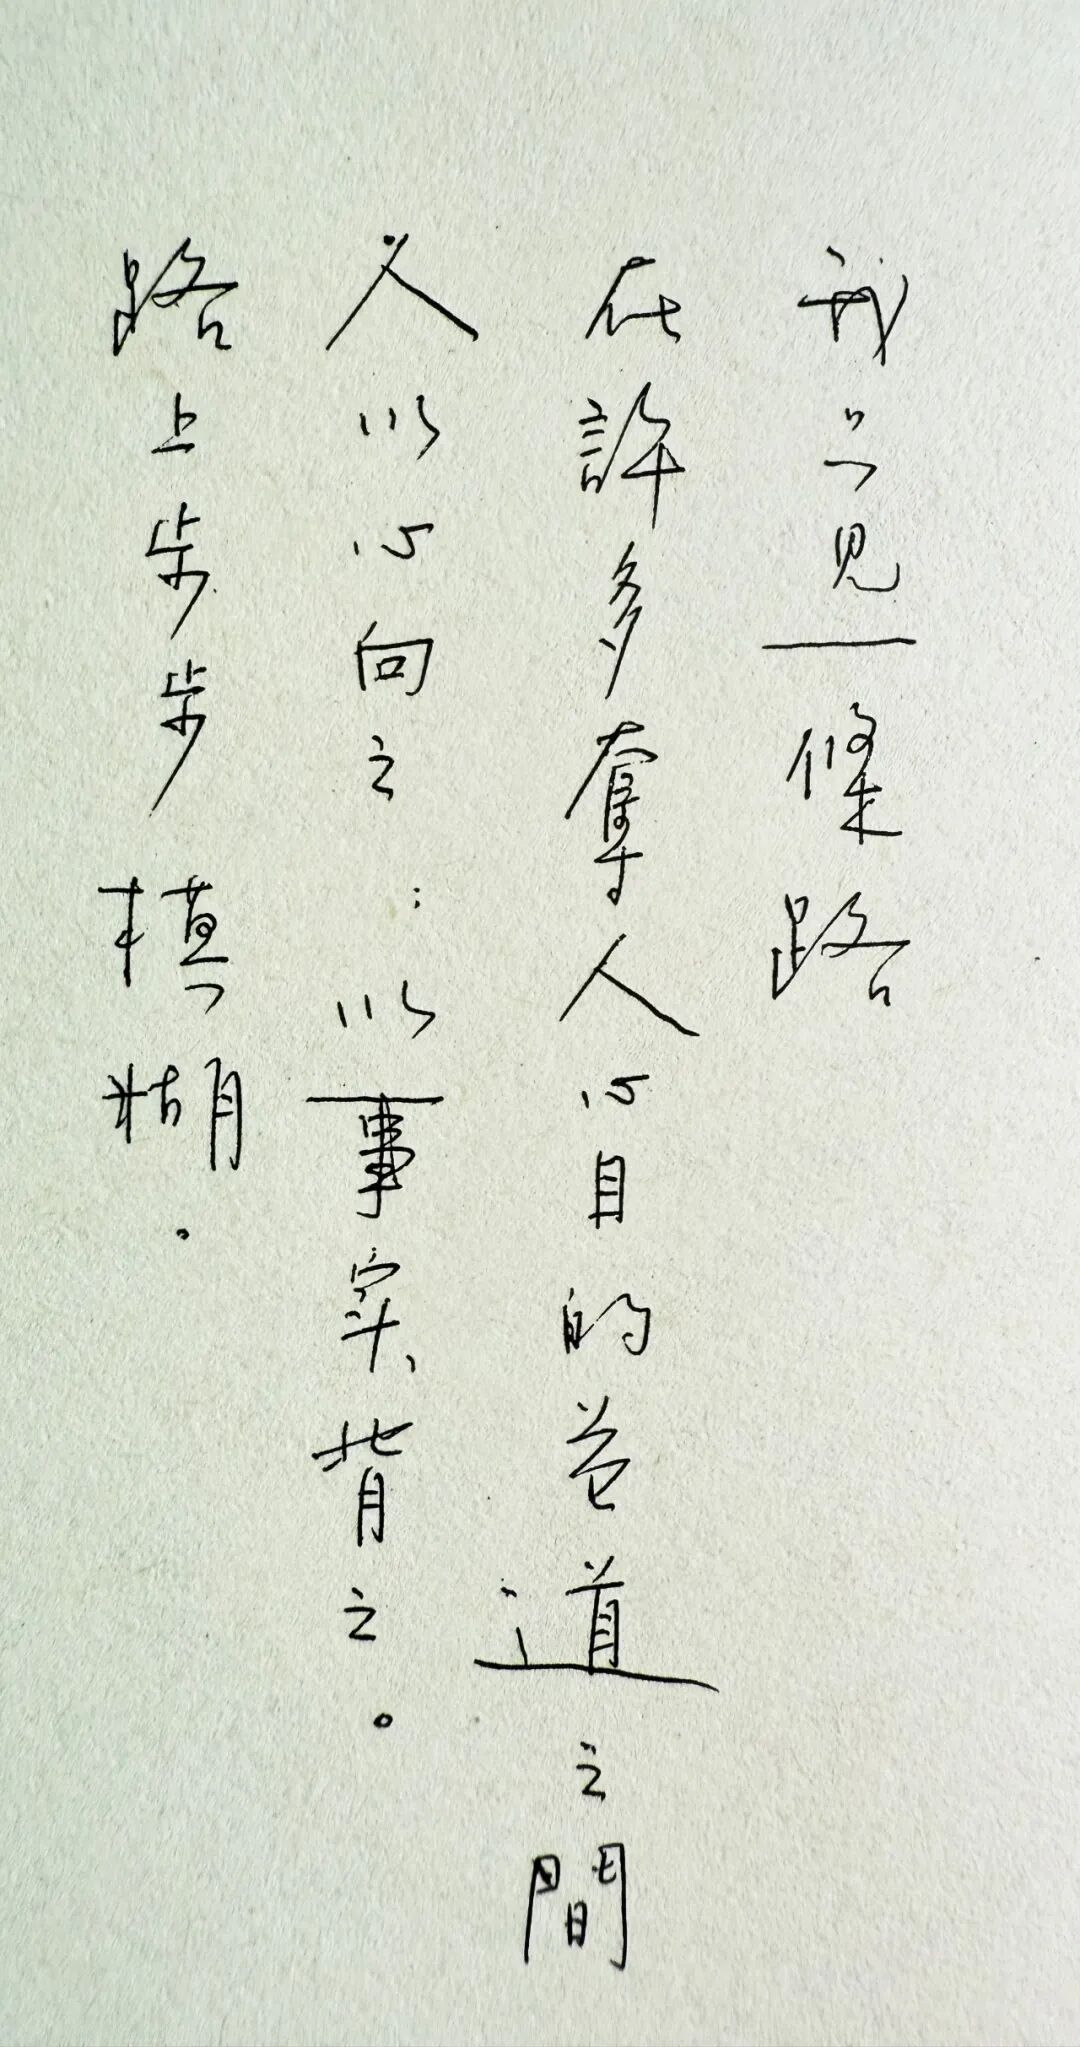 我只見一條路
在許多奪人心目的巷道之間
人以心向之：以事实背之。
路上步步模糊.